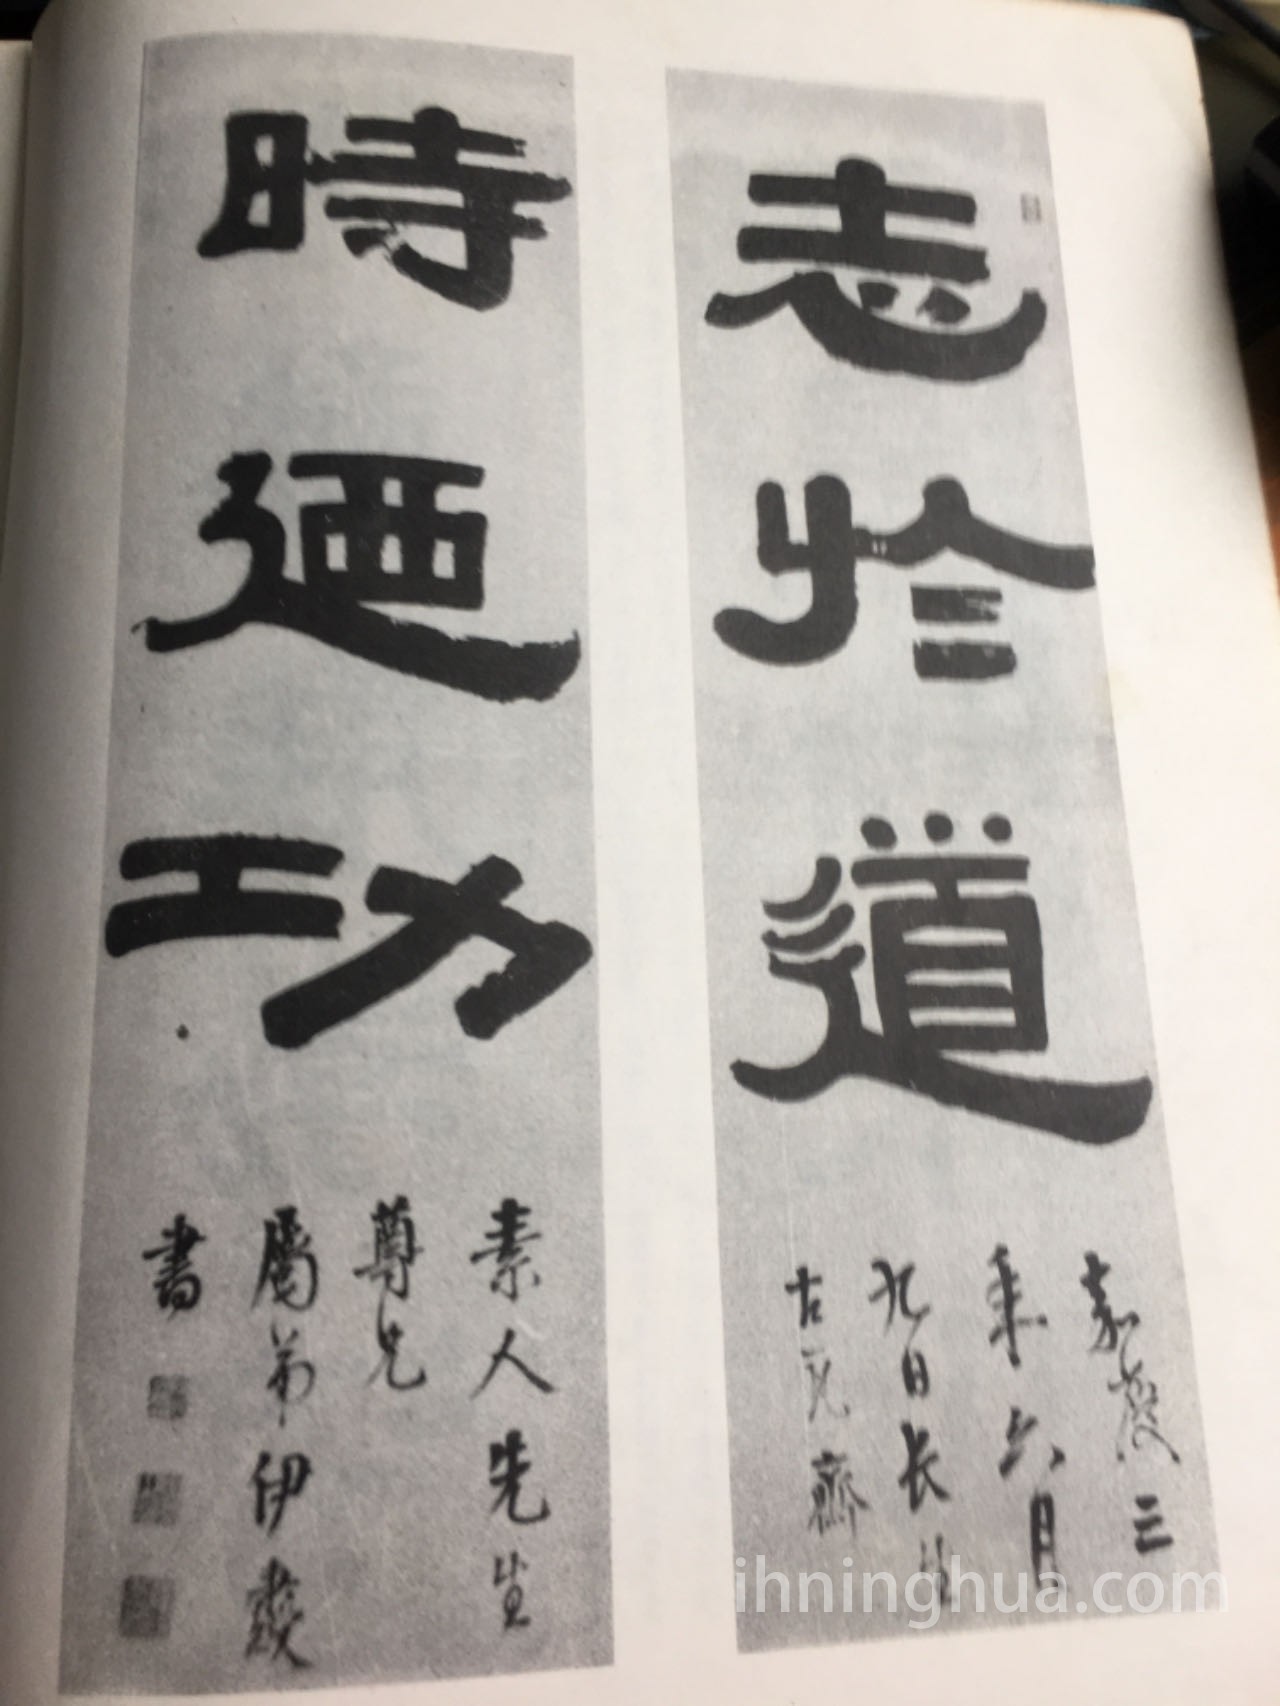 志於道
嘉慶三
年六月
九日長生
古瓦齋
時迺功
素人先生
尊兄
屬弟伊秉綬
書
ihninghua.com